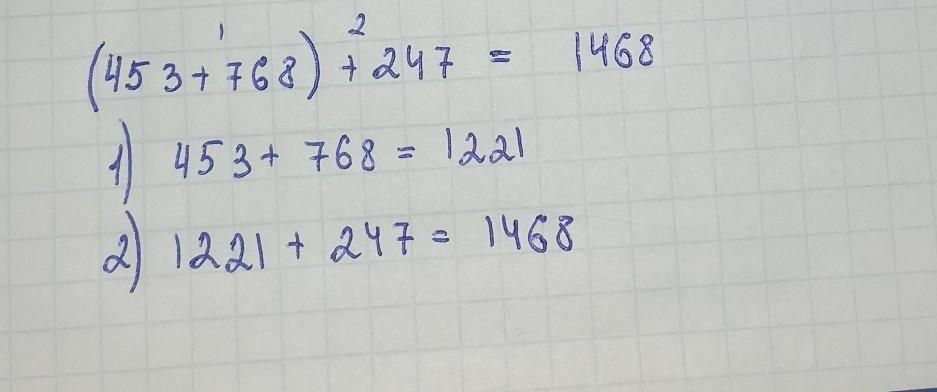 1 2
(453+768)+247 = 1468
1) 453+ 768 = 1221
2) 1221 + 247 = 1468